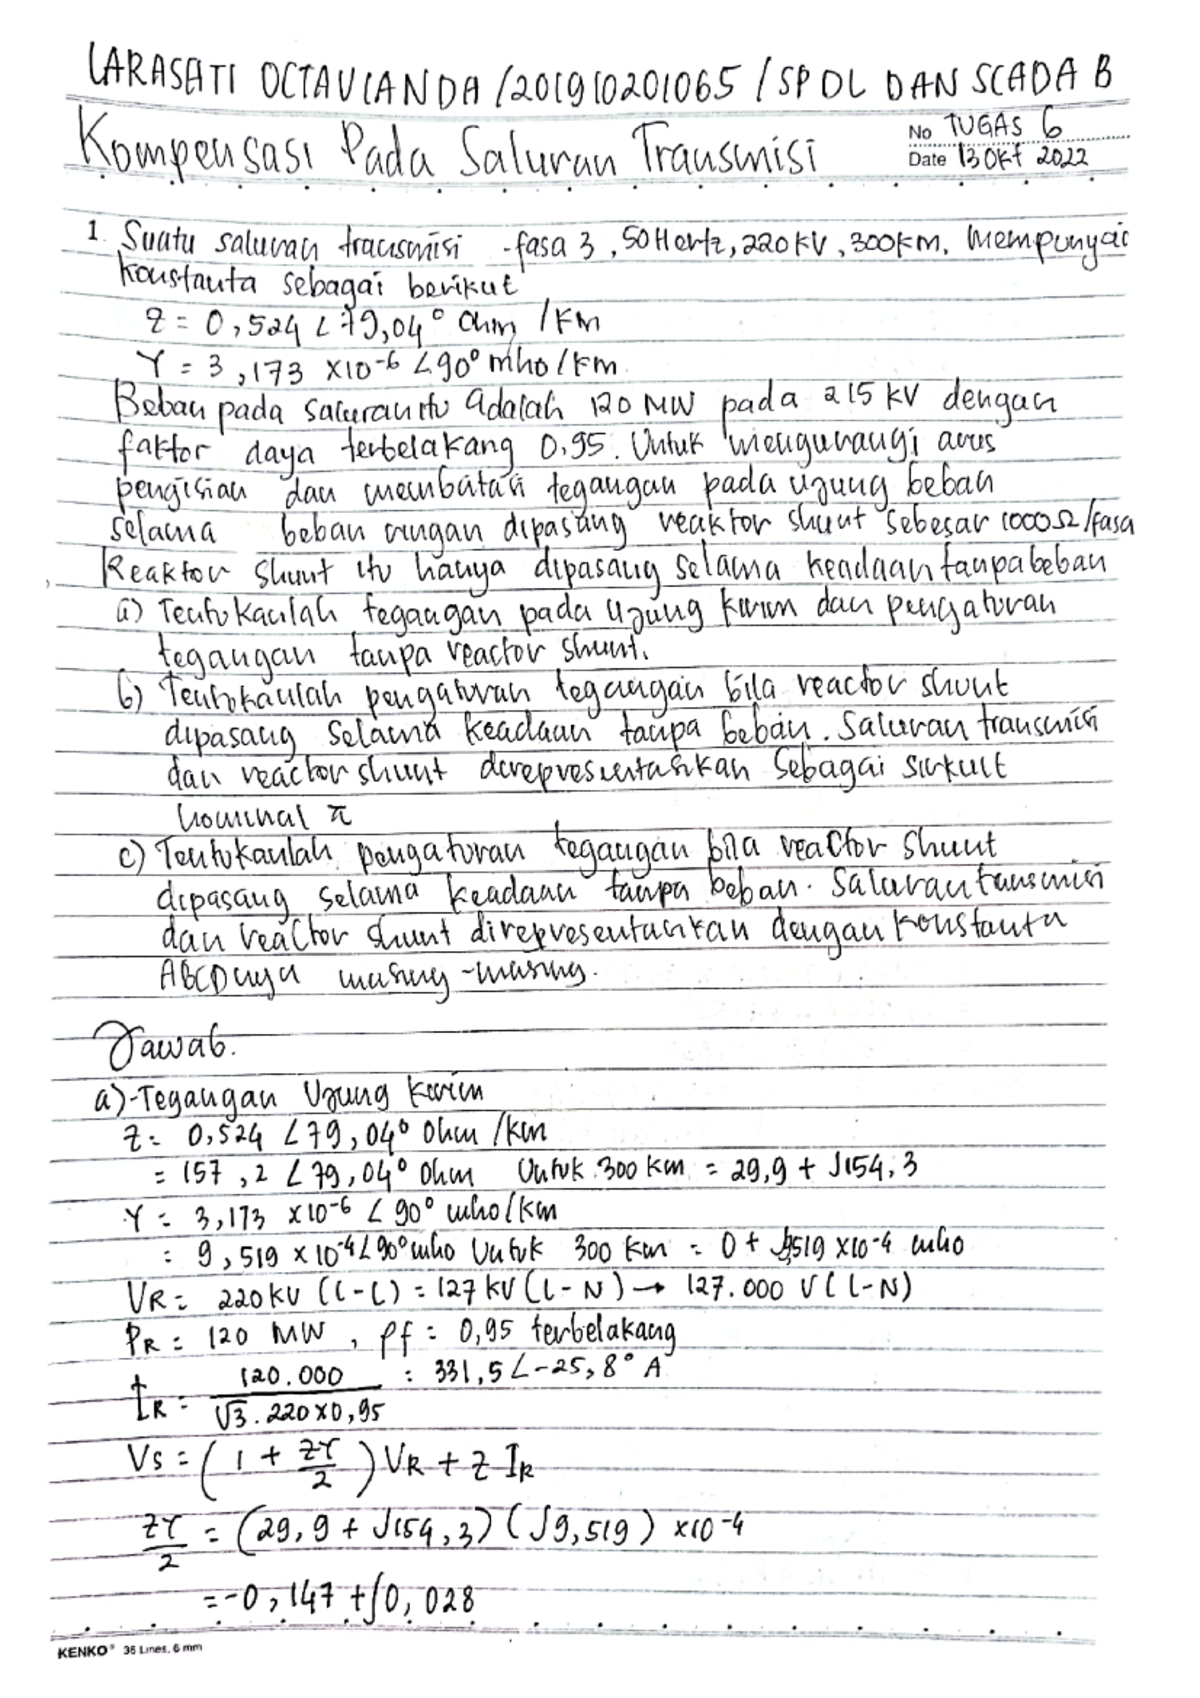 LARASATI OCTAVIANDA /201910201065 / SPDL DAN SCADA B
Kompensasi Pada Saluran Transmisi
No TUGAS 6
Date 13 Okt 2022
1. Suatu saluran transmisi -fasa 3, 50 Hertz, 220 kV, 300 KM. Mempunyai
konstanta sebagai berikut
Z = 0,524 ∠79,04° Ohm /KM
Y = 3,173 x10⁻⁶ ∠90° mho/KM
Beban pada saluran itu adalah 120 MW pada 215 kV dengan
faktor daya terbelakang 0.95. Untuk mengurangi arus
pengisian dan membatasi tegangan pada ujung beban
selama beban ringan dipasang reaktor shunt sebesar 1000 Ω/fasa
Reaktor shunt itu hanya dipasang selama keadaan tanpa beban
a) Tentukanlah tegangan pada ujung kirim dan pengaturan
tegangan tanpa reactor shunt.
b) Tentukanlah pengaturan tegangan bila reactor shunt
dipasang selama keadaan tanpa beban. Saluran transmisi
dan reactor shunt direpresentasikan sebagai sirkuit
nominal π
c) Tentukanlah pengaturan tegangan bila reactor shunt
dipasang selama keadaan tanpa beban. Saluran tansmisi
dan reactor shunt direpresentasikan dengan konstanta
ABCDnya masing-masing.
Jawab.
a)-Tegangan Ujung Kirim
Z = 0,524 ∠79,04° Ohm /km
= 157,2 ∠79,04° Ohm Untuk 300 km = 29,9 + J154,3
Y = 3,173 x10⁻⁶ ∠90° mho/km
= 9,519 x 10⁻⁴∠90° mho Untuk 300 km = 0 + J9,519 x10⁻⁴ mho
VR = 220 kV (L-L) = 127 kV (L-N) → 127.000 V (L-N)
PR = 120 MW, pf = 0,95 terbelakang
IR = 120.000 / √3 . 220 x 0,95 = 331,5 ∠-25,8° A
Vs = (1 + ZY/2) VR + Z IR
ZY/2 = (29,9 + J154,3) (J9,519) x10⁻⁴
= -0,147 + J0,028
KENKO® 36 Lines. 6 mm